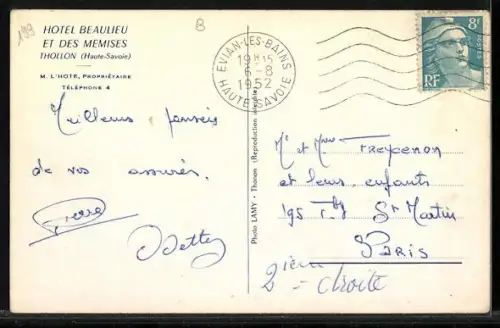 199
8
HOTEL BEAULIEU
ET DES MEMISES
THOLLON (Haute-Savoie)
M. L'HOTE, PROPRIÉTAIRE
TÉLÉPHONE 4
EVIAN-LES-BAINS
19H15
8
1952
HAUTE-SAVOIE
8F
POSTES
RF
Photo LAMY - Thonon (Reproduction interdite)
Meilleurs pensées
de vos assurés.
Pierre
Odette
Mr et Mme FREYCENON
et leurs enfants
195 Fbg St Martin
PARIS
2ième droite